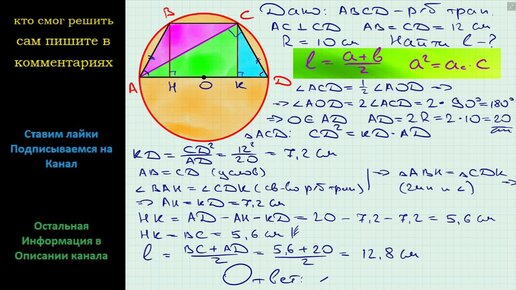 кто смог решить
сам пишите в
комментариях
Ставим лайки
Подписываемся на
Канал
Остальная
Информация в
Описании канала
B
C
A
H
O
K
D
Дано: ABCD – р/б трап.
AC ⊥ CD AB = CD = 12 см
R = 10 см Найти l – ?
l = (a + b)/2 a² = a_c · c
∠ACD = 1/2 ∠AOD ⇒
⇒ ∠AOD = 2∠ACD = 2 · 90° = 180°
⇒ O ∈ AD AD = 2R = 2 · 10 = 20 см
△ACD: CD² = KD · AD
KD = CD²/AD = 12²/20 = 7,2 см
AB = CD (услов)
∠BAH = ∠CDK (св-во р/б трап) ⇒ △ABH = △CDK
⇒ AH = KD = 7,2 см (гип и с)
HK = AD – AH – KD = 20 – 7,2 – 7,2 = 5,6 см
HK = BC = 5,6 см
l = (BC + AD)/2 = (5,6 + 20)/2 = 12,8 см
Ответ: